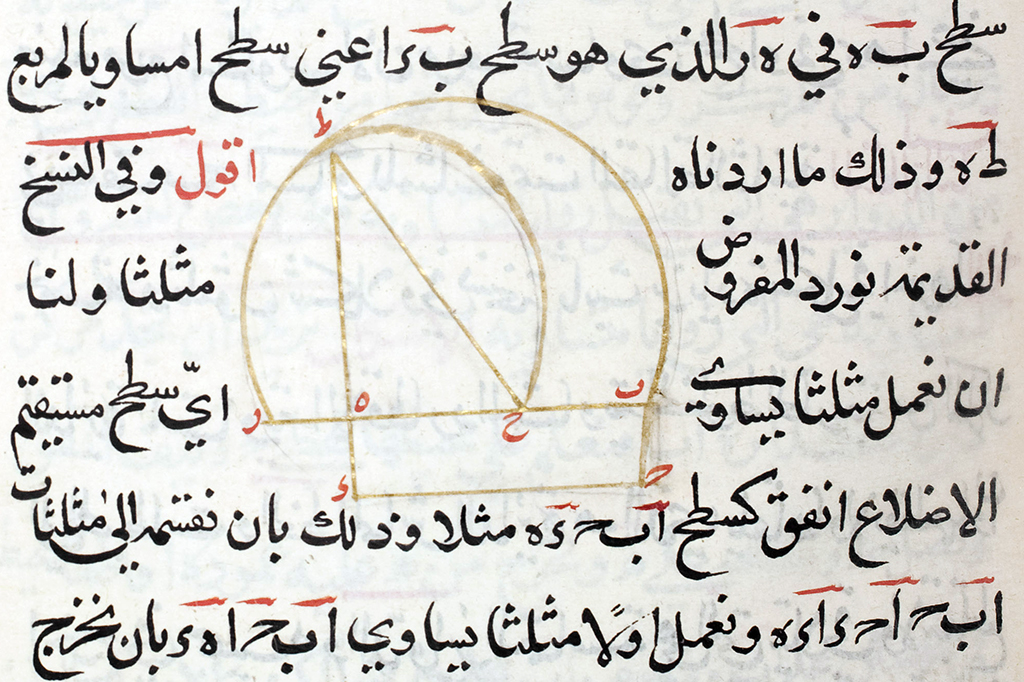 سطح ب ه في ه ر الذي هو سطح ب ء اعني سطح ا مساويا لمربع
ط ه وذلك ما اردناه اقول وفي النسخ
القديمة نورد المفروض مثلثا ولنا
ان نعمل مثلثا يساوي ايّ سطح مستقيم
الاضلاع اتفق كسطح ا ب ح ء ه مثلا وذلك بان نقسمه الى مثلثات
ا ب ح ا ح ء ا ء ه ونعمل اولًا مثلثا يساوي ا ب ح ا ه ء بان نخرج
ط
ر
ه
ح
ب
ء
ح